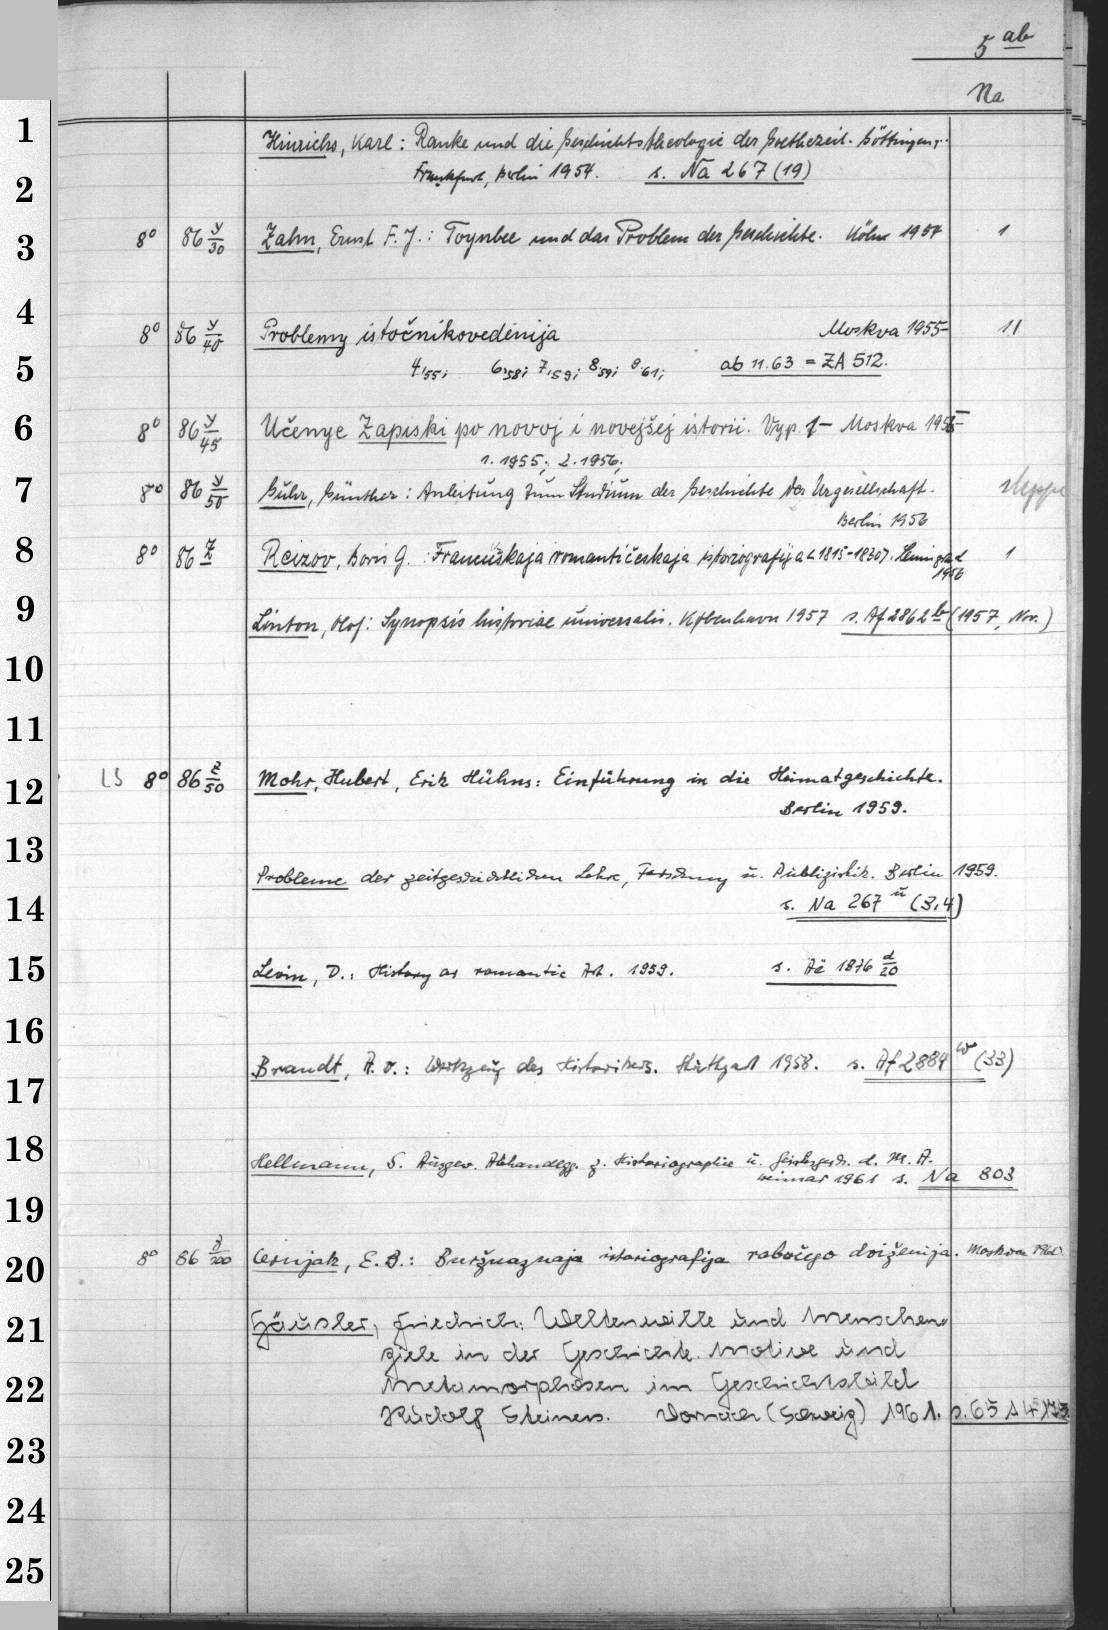 5 ab
Na
1 Hinrichs, Karl: Ranke und die Geschichtstheologie der Goethezeit. Göttingen,
2 Frankfurt, Berlin 1954. s. Na 267 (19)
3 8° 86 y/30 Zahn, Ernst F. J.: Toynbee und das Problem der Geschichte. Köln 1954 1
4 8° 86 y/40 Problemy istočnikovedenija Moskva 1955- 11
5 4.155; 6,58; 7,59; 8,59; 9.61; ab 11.63 = ZA 512.
6 8° 86 y/45 Učenye Zapiski po novoj i novejšej istorii. Vyp. 1- Moskva 1955-
1.1955; 2.1956;
7 8° 86 y/50 Guhr, Günther: Anleitung zum Studium der Geschichte der Urgesellschaft.
Berlin 1956
8 8° 86 z Reizov, Boris G. Francuskaja romantičeskaja istoriografija <1815-1830>. Leningrad 1
1956
9 Linton, Olof: Synopsis historiae universalis. København 1957 s. Af 2862 b (1957, Nov.)
10
11
12 LS 8° 86 z/50 Mohr, Hubert, Erik Hühns: Einführung in die Heimatgeschichte.
Berlin 1959.
13 Probleme der zeitgeschichtlichen Lehre, Forschung u. Publizistik. Berlin 1959.
14 s. Na 267 ü (3,4)
15 Levin, D.: History as romantic Art. 1959. s. Aë 1876 d/20
16
17 Brandt, A. v.: Werkzeug des Historikers. Stuttgart 1958. s. Af 2884 w (33)
18 Hellmann, S. Ausgew. Abhandlgg. z. Historiographie u. Geistesgesch. d. M. A.
Weimar 1961 s. Na 803
19
20 8° 86 z/200 Černjak, E. B.: Buržuaznaja istoriografija rabočego dviženija. Moskva
21 Häusler, Friedrich: Weltenwille und Menschen-
ziele in der Geschichte. Motive und
22 Metamorphosen im Geschichtsbild
Rudolf Steiners. Dornach (Schweiz) 1961. s. 65 A 4
23
24
25